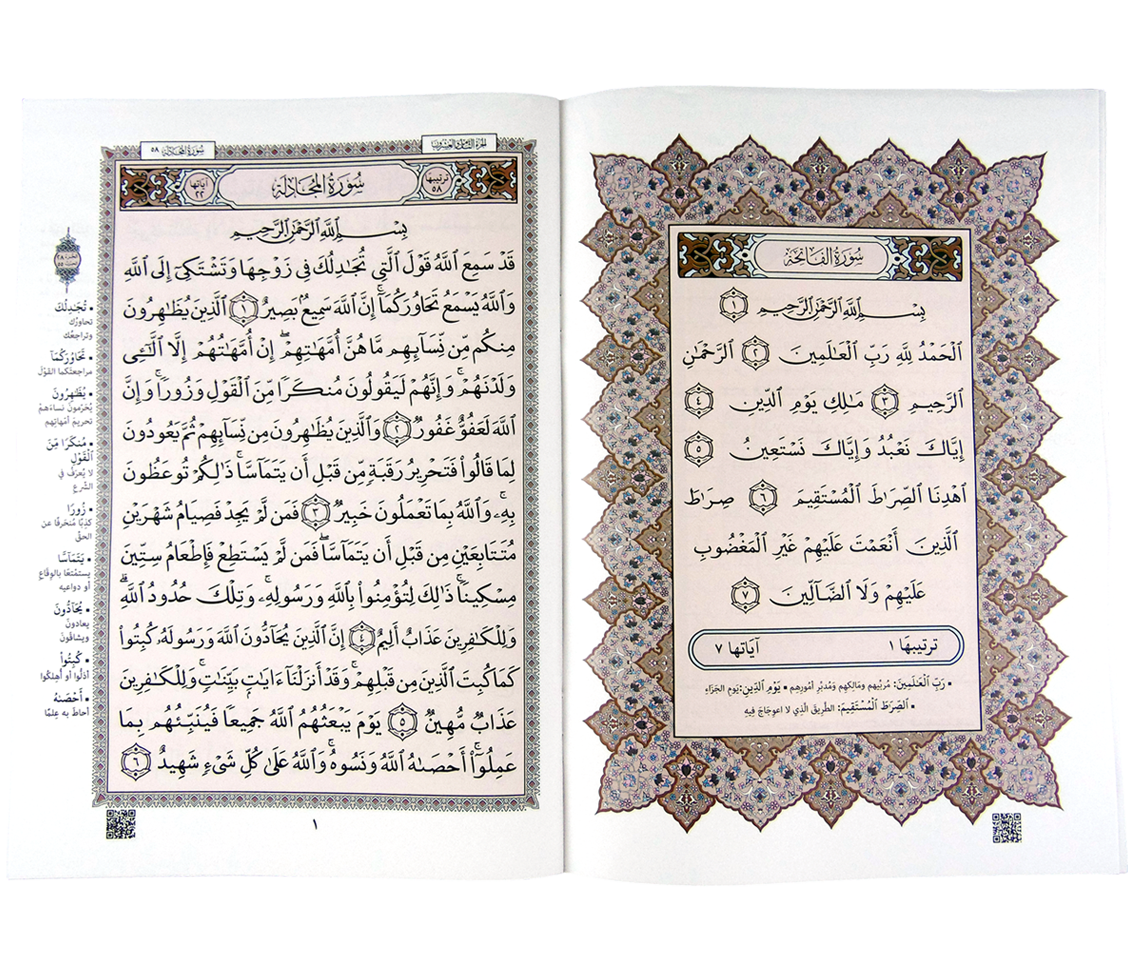 سُورَةُ الفَاتِحَةِ
بِسْمِ ٱللَّهِ ٱلرَّحْمَٰنِ ٱلرَّحِيمِ ١
ٱلْحَمْدُ لِلَّهِ رَبِّ ٱلْعَٰلَمِينَ ٢ ٱلرَّحْمَٰنِ
ٱلرَّحِيمِ ٣ مَٰلِكِ يَوْمِ ٱلدِّينِ ٤
إِيَّاكَ نَعْبُدُ وَإِيَّاكَ نَسْتَعِينُ ٥
ٱهْدِنَا ٱلصِّرَٰطَ ٱلْمُسْتَقِيمَ ٦ صِرَٰطَ
ٱلَّذِينَ أَنْعَمْتَ عَلَيْهِمْ غَيْرِ ٱلْمَغْضُوبِ
عَلَيْهِمْ وَلَا ٱلضَّآلِّينَ ٧
ترتيبها ١ آياتها ٧
• رَبِّ ٱلْعَٰلَمِينَ: مُربّيهم ومَالِكِهم ومُدبّرِ أمُورِهم • يَوْمِ ٱلدِّينِ: يَومِ الجَزَاءِ
• ٱلصِّرَٰطَ ٱلْمُسْتَقِيمَ: الطَّرِيقَ الَّذِي لا اعوِجَاجَ فِيهِ
الجزء الثامن والعشرون
سورة المجادلة ٥٨
ترتيبها ٥٨ سُورَةُ المُجَادلَة آياتها ٢٢
بِسْمِ ٱللَّهِ ٱلرَّحْمَٰنِ ٱلرَّحِيمِ
قَدْ سَمِعَ ٱللَّهُ قَوْلَ ٱلَّتِي تُجَٰدِلُكَ فِي زَوْجِهَا وَتَشْتَكِيٓ إِلَى ٱللَّهِ
وَٱللَّهُ يَسْمَعُ تَحَاوُرَكُمَآۚ إِنَّ ٱللَّهَ سَمِيعُۢ بَصِيرٌ ١ ٱلَّذِينَ يُظَٰهِرُونَ
مِنكُم مِّن نِّسَآئِهِم مَّا هُنَّ أُمَّهَٰتِهِمْۖ إِنْ أُمَّهَٰتُهُمْ إِلَّا ٱلَّٰٓـِٔي
وَلَدْنَهُمْۚ وَإِنَّهُمْ لَيَقُولُونَ مُنكَرًا مِّنَ ٱلْقَوْلِ وَزُورًاۚ وَإِنَّ
ٱللَّهَ لَعَفُوٌّ غَفُورٌ ٢ وَٱلَّذِينَ يُظَٰهِرُونَ مِن نِّسَآئِهِمْ ثُمَّ يَعُودُونَ
لِمَا قَالُوا۟ فَتَحْرِيرُ رَقَبَةٍ مِّن قَبْلِ أَن يَتَمَآسَّاۚ ذَٰلِكُمْ تُوعَظُونَ
بِهِۦۚ وَٱللَّهُ بِمَا تَعْمَلُونَ خَبِيرٌ ٣ فَمَن لَّمْ يَجِدْ فَصِيَامُ شَهْرَيْنِ
مُتَتَابِعَيْنِ مِن قَبْلِ أَن يَتَمَآسَّاۖ فَمَن لَّمْ يَسْتَطِعْ فَإِطْعَامُ سِتِّينَ
مِسْكِينًاۚ ذَٰلِكَ لِتُؤْمِنُوا۟ بِٱللَّهِ وَرَسُولِهِۦۚ وَتِلْكَ حُدُودُ ٱللَّهِۗ
وَلِلْكَٰفِرِينَ عَذَابٌ أَلِيمٌ ٤ إِنَّ ٱلَّذِينَ يُحَآدُّونَ ٱللَّهَ وَرَسُولَهُۥ كُبِتُوا۟
كَمَا كُبِتَ ٱلَّذِينَ مِن قَبْلِهِمْۚ وَقَدْ أَنزَلْنَآ ءَايَٰتِۭ بَيِّنَٰتٍۚ وَلِلْكَٰفِرِينَ
عَذَابٌ مُّهِينٌ ٥ يَوْمَ يَبْعَثُهُمُ ٱللَّهُ جَمِيعًا فَيُنَبِّئُهُم بِمَا
عَمِلُوٓا۟ۚ أَحْصَىٰهُ ٱللَّهُ وَنَسُوهُۚ وَٱللَّهُ عَلَىٰ كُلِّ شَيْءٍ شَهِيدٌ ٦
• تُجَٰدِلُكَ
تحاورُك
وتراجعُك
• تَحَاوُرَكُمَآ
مراجعتَكما القَوْلَ
• يُظَٰهِرُونَ
يُحَرّمونَ نساءَهمْ
تحريمَ أمّهاتِهِم
• مُنكَرًا مِّنَ
ٱلْقَوْلِ
لا يُعرَفُ في
الشّرعِ
• زُورًا
كذِبًا مُنحَرفًا عن
الحقّ
• يَتَمَآسَّا
يستمْتِعَا بالوِقاعِ
أو دواعيه
• يُحَآدُّونَ
يعادونَ
ويشاقّونَ
• كُبِتُوا۟
أذلّوا أو أُهلِكُوا
• أَحْصَىٰهُ
أحاطَ به عِلْمًا
١